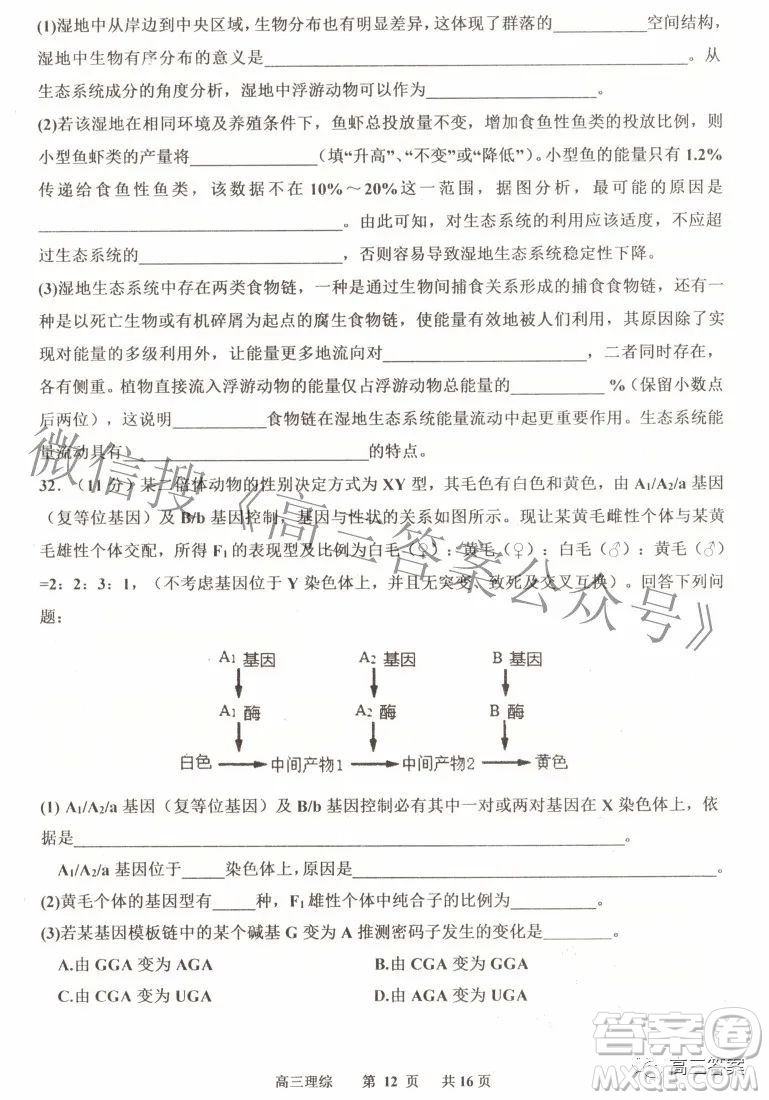 (1)湿地中从岸边到中央区域，生物分布也有明显差异，这体现了群落的__________空间结构，
湿地中生物有序分布的意义是____________________________________________。从
生态系统成分的角度分析，湿地中浮游动物可以作为__________________。
(2)若该湿地在相同环境及养殖条件下，鱼虾总投放量不变，增加食鱼性鱼类的投放比例，则
小型鱼虾类的产量将_____________（填“升高”、“不变”或“降低”）。小型鱼的能量只有 1.2%
传递给食鱼性鱼类，该数据不在 10%～20%这一范围，据图分析，最可能的原因是
________________________________。由此可知，对生态系统的利用应该适度，不应超
过生态系统的________________________，否则容易导致湿地生态系统稳定性下降。
(3)湿地生态系统中存在两类食物链，一种是通过生物间捕食关系形成的捕食食物链，另一
种是以死亡生物或有机碎屑为起点的腐生食物链，使能量有效地被人们利用，其原因除了实
现对能量的多级利用外，让能量更多地流向对____________________，二者同时存在、
各有侧重。植物直接流入浮游动物的能量仅占浮游动物总能量的_________ %（保留小数点
后两位），这说明__________食物链在湿地生态系统能量流动中起更重要作用。生态系统能
量流动具有__________________________的特点。
32．（11 分）某二倍体动物的性别决定方式为 XY 型，其毛色有白色和黄色，由 A1/A2/a 基因
（复等位基因）及 B/b 基因控制，基因与性状的关系如图所示。现让某黄毛雌性个体与某黄
毛雄性个体交配，所得 F1 的表现型及比例为白毛（♀）：黄毛（♀）：白毛（♂）：黄毛（♂）
=2：2：3：1，（不考虑基因位于 Y 染色体上，并且无突变、致死及交叉互换）。回答下列问
题：
A1 基因 A2 基因 B 基因
A1 酶 A2 酶 B 酶
白色 中间产物1 中间产物2 黄色
(1) A1/A2/a 基因（复等位基因）及 B/b 基因控制必有其中一对或两对基因在 X 染色体上，依
据是____________________________________________________________。
A1/A2/a 基因位于_____染色体上，原因是__________________________________________。
(2)黄毛个体的基因型有_____种，F1 雄性个体中纯合子的比例为__________。
(3)若某基因模板链中的某个碱基 G 变为 A 推测密码子发生的变化是________。
A.由 GGA 变为 AGA B.由 CGA 变为 GGA
C.由 CGA 变为 UGA D.由 AGA 变为 UGA
高三理综 第 12 页 共 16 页
微信搜《高三答案公众号》
答案卷
高三答案
MXQE.COM